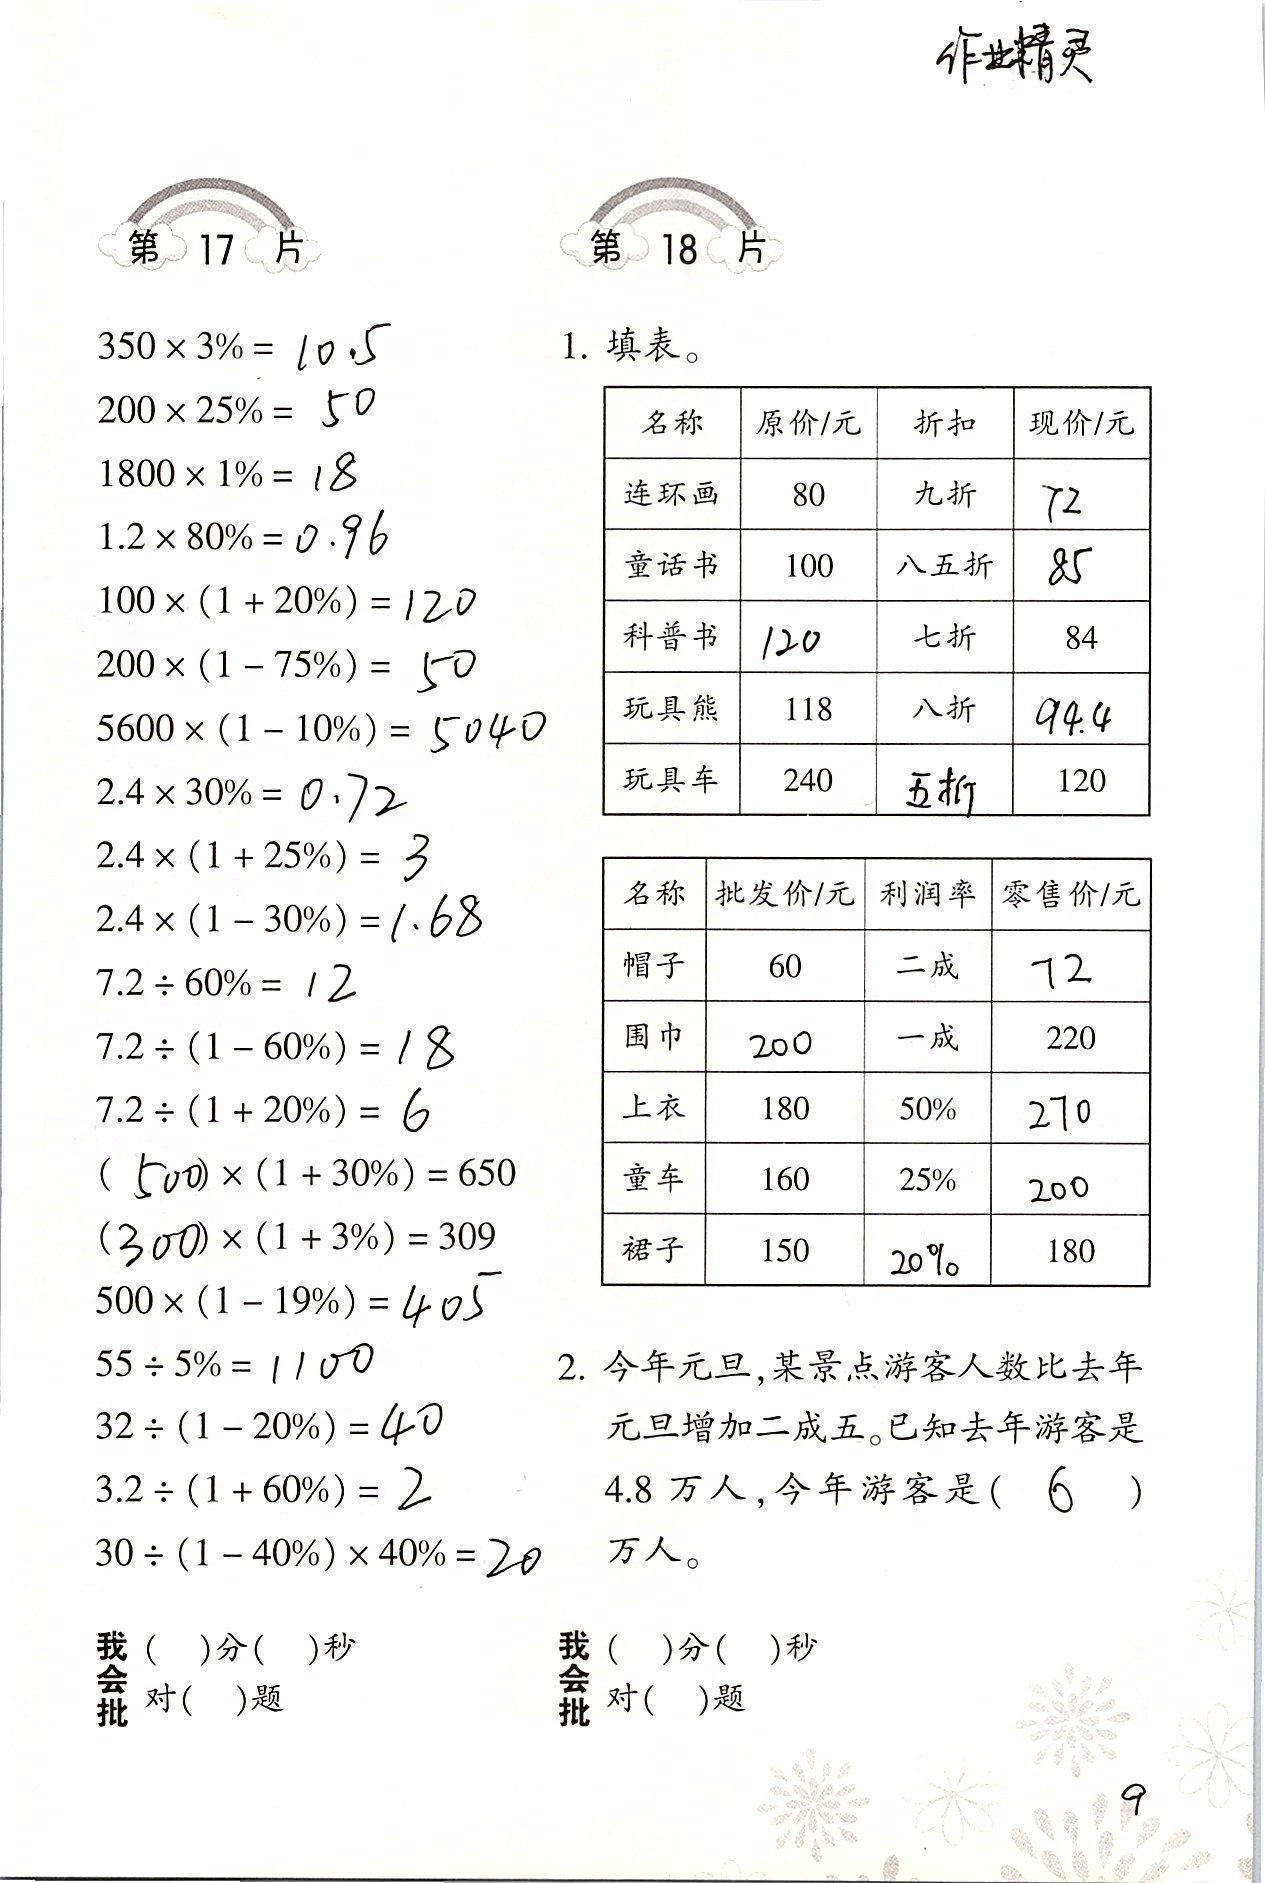 作业精灵
第 17 片
350 × 3% = 10.5
200 × 25% = 50
1800 × 1% = 18
1.2 × 80% = 0.96
100 × (1 + 20%) = 120
200 × (1 - 75%) = 50
5600 × (1 - 10%) = 5040
2.4 × 30% = 0.72
2.4 × (1 + 25%) = 3
2.4 × (1 - 30%) = 1.68
7.2 ÷ 60% = 12
7.2 ÷ (1 - 60%) = 18
7.2 ÷ (1 + 20%) = 6
(500) × (1 + 30%) = 650
(300) × (1 + 3%) = 309
500 × (1 - 19%) = 405
55 ÷ 5% = 1100
32 ÷ (1 - 20%) = 40
3.2 ÷ (1 + 60%) = 2
30 ÷ (1 - 40%) × 40% = 20
我会批 ( )分( )秒
对( )题
第 18 片
1. 填表。
名称 原价/元 折扣 现价/元
连环画 80 九折 72
童话书 100 八五折 85
科普书 120 七折 84
玩具熊 118 八折 94.4
玩具车 240 五折 120
名称 批发价/元 利润率 零售价/元
帽子 60 二成 72
围巾 200 一成 220
上衣 180 50% 270
童车 160 25% 200
裙子 150 20% 180
2. 今年元旦,某景点游客人数比去年
元旦增加二成五。已知去年游客是
4.8 万人,今年游客是( 6 )
万人。
我会批 ( )分( )秒
对( )题
9